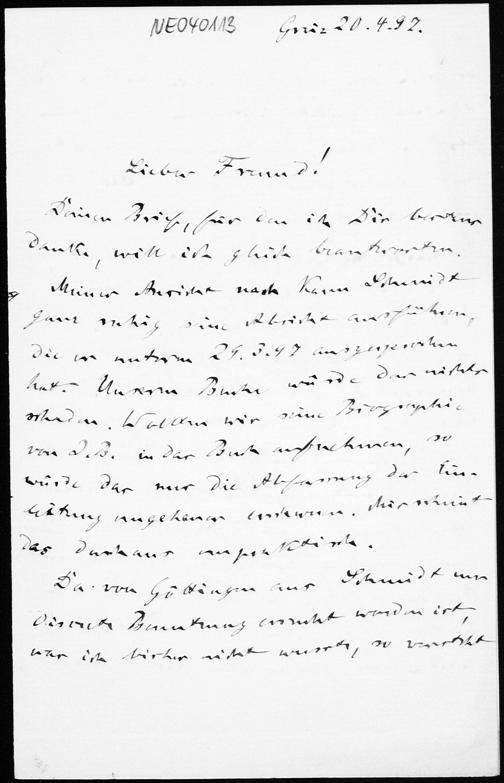 NE040113
Graz 20.4.97.
Lieber Freund!
Deinen Brief, für den ich Dir bestens
danke, will ich gleich beantworten.
Meiner Ansicht nach kann Schmidt
ganz ruhig seine Absicht ausführen,
die er unterm 29.3.97 ausgesprochen
hat. Unserem Buche würde das nichts
schaden. Wollten wir seine Biographie
von J.B. in das Buch aufnehmen, so
würde das nur die Abfassung der Ein-
leitung ungeheuer erschweren. Mir scheint
das durchaus unpraktisch.
Da von Göttingen aus Schmidt um
discrete Benutzung ersucht worden ist,
was ich bisher nicht wusste, so versteht